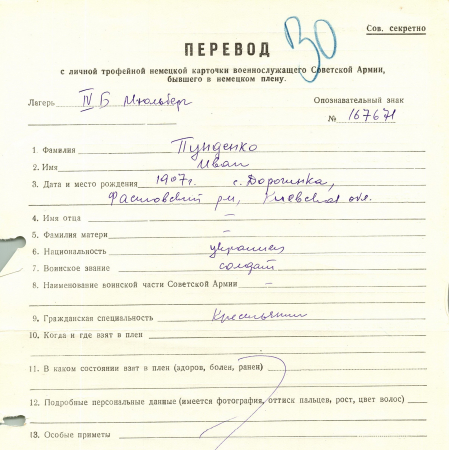 30
Сов. секретно
ПЕРЕВОД
с личной трофейной немецкой карточки военнослужащего Советской Армии,
бывшего в немецком плену.
Лагерь IV Б Мюльберг
Опознавательный знак
№ 167671
1. Фамилия Пунденко
2. Имя Иван
3. Дата и место рождения 1907г. с. Дорогинка,
Фастовский р-н, Киевская обл.
4. Имя отца –
5. Фамилия матери –
6. Национальность украинец
7. Воинское звание солдат.
8. Наименование воинской части Советской Армии –
9. Гражданская специальность Крестьянин
10. Когда и где взят в плен
11. В каком состоянии взят в плен (здоров, болен, ранен)
12. Подробные персональные данные (имеется фотография, оттиск пальцев, рост, цвет волос)
13. Особые приметы